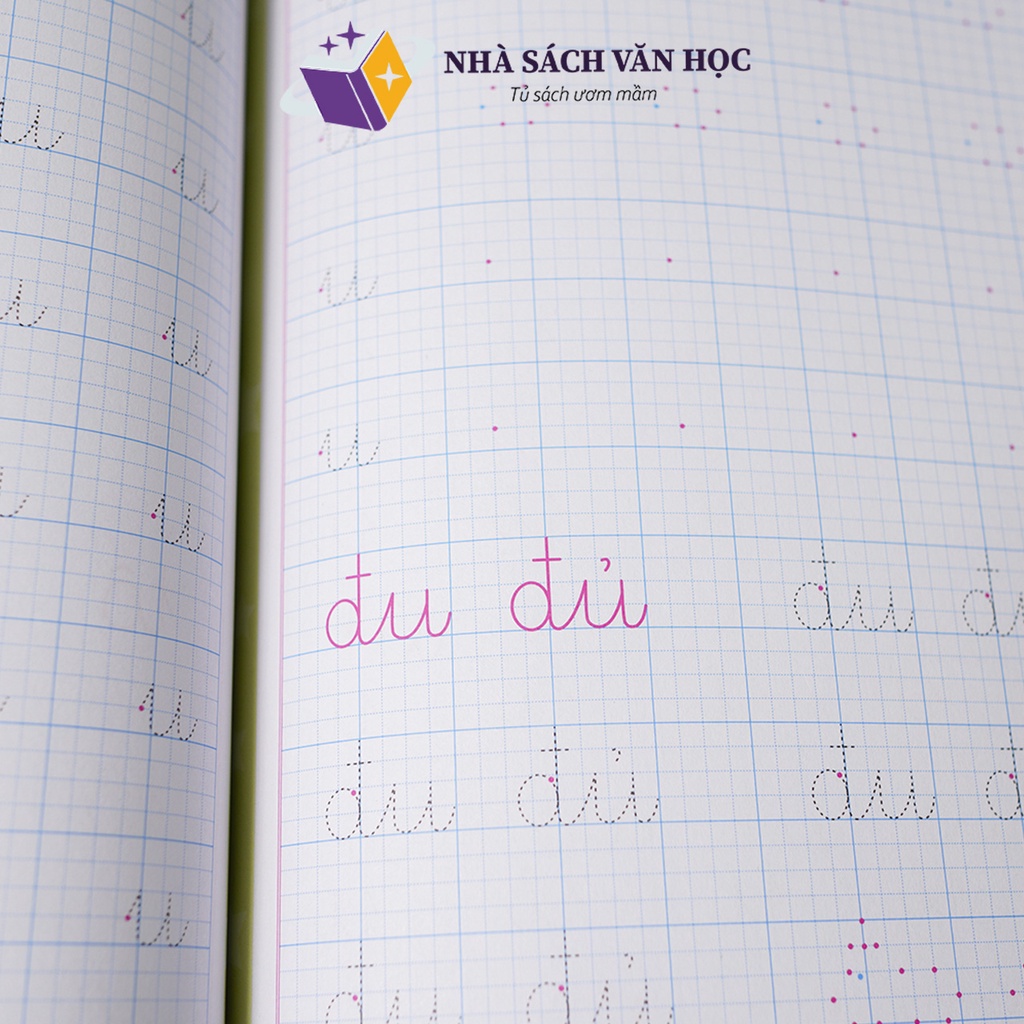 NHÀ SÁCH VĂN HỌC
Tủ sách ươm mầm
u
u u
u
u u
u
u
đu đủ đu
u
đu đủ đu
u
đu đủ